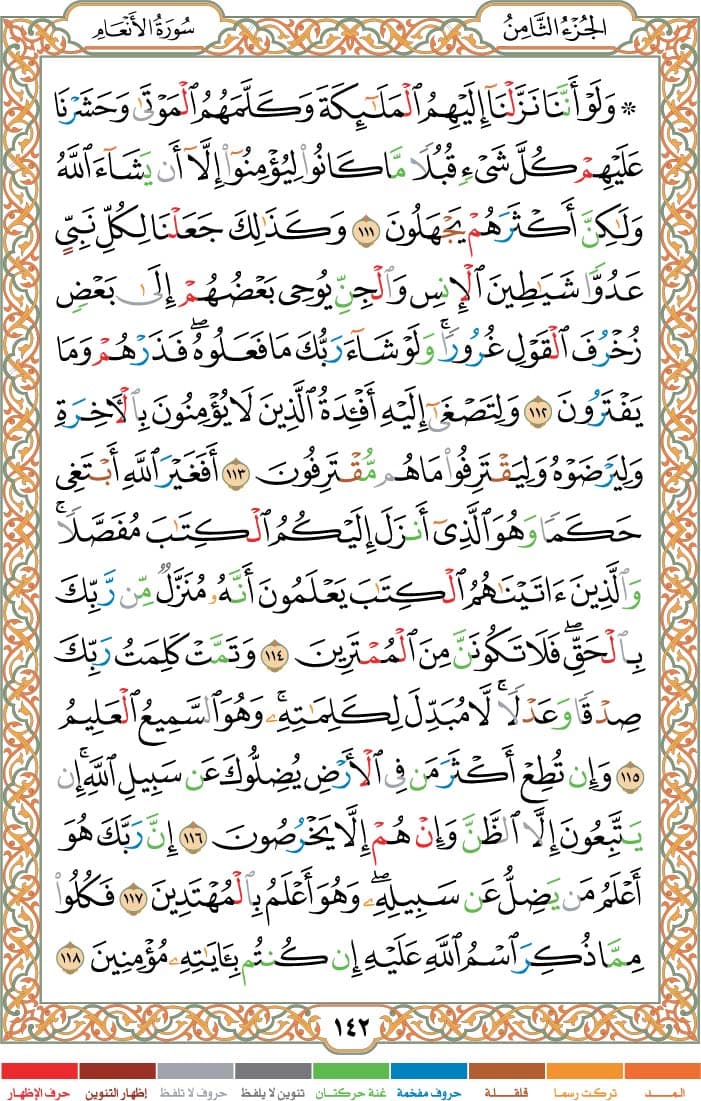 الجزء الثامن
سورة الأنعام
* وَلَوْ أَنَّنَا نَزَّلْنَآ إِلَيْهِمُ ٱلْمَلَٰٓئِكَةَ وَكَلَّمَهُمُ ٱلْمَوْتَىٰ وَحَشَرْنَا
عَلَيْهِمْ كُلَّ شَىْءٍ قُبُلًا مَّا كَانُوا۟ لِيُؤْمِنُوٓا۟ إِلَّآ أَن يَشَآءَ ٱللَّهُ
وَلَٰكِنَّ أَكْثَرَهُمْ يَجْهَلُونَ ١١١ وَكَذَٰلِكَ جَعَلْنَا لِكُلِّ نَبِىٍّ
عَدُوًّا شَيَٰطِينَ ٱلْإِنسِ وَٱلْجِنِّ يُوحِى بَعْضُهُمْ إِلَىٰ بَعْضٍ
زُخْرُفَ ٱلْقَوْلِ غُرُورًا ۚ وَلَوْ شَآءَ رَبُّكَ مَا فَعَلُوهُ ۖ فَذَرْهُمْ وَمَا
يَفْتَرُونَ ١١٢ وَلِتَصْغَىٰٓ إِلَيْهِ أَفْـِٔدَةُ ٱلَّذِينَ لَا يُؤْمِنُونَ بِٱلْءَاخِرَةِ
وَلِيَرْضَوْهُ وَلِيَقْتَرِفُوا۟ مَا هُم مُّقْتَرِفُونَ ١١٣ أَفَغَيْرَ ٱللَّهِ أَبْتَغِى
حَكَمًا وَهُوَ ٱلَّذِىٓ أَنزَلَ إِلَيْكُمُ ٱلْكِتَٰبَ مُفَصَّلًا ۚ
وَٱلَّذِينَ ءَاتَيْنَٰهُمُ ٱلْكِتَٰبَ يَعْلَمُونَ أَنَّهُۥ مُنَزَّلٌ مِّن رَّبِّكَ
بِٱلْحَقِّ ۖ فَلَا تَكُونَنَّ مِنَ ٱلْمُمْتَرِينَ ١١٤ وَتَمَّتْ كَلِمَتُ رَبِّكَ
صِدْقًا وَعَدْلًا ۚ لَّا مُبَدِّلَ لِكَلِمَٰتِهِۦ ۚ وَهُوَ ٱلسَّمِيعُ ٱلْعَلِيمُ
١١٥ وَإِن تُطِعْ أَكْثَرَ مَن فِى ٱلْأَرْضِ يُضِلُّوكَ عَن سَبِيلِ ٱللَّهِ ۚ إِن
يَتَّبِعُونَ إِلَّا ٱلظَّنَّ وَإِنْ هُمْ إِلَّا يَخْرُصُونَ ١١٦ إِنَّ رَبَّكَ هُوَ
أَعْلَمُ مَن يَضِلُّ عَن سَبِيلِهِۦ ۖ وَهُوَ أَعْلَمُ بِٱلْمُهْتَدِينَ ١١٧ فَكُلُوا۟
مِمَّا ذُكِرَ ٱسْمُ ٱللَّهِ عَلَيْهِ إِن كُنتُم بِـَٔايَٰتِهِۦ مُؤْمِنِينَ ١١٨
١٤٢
المد تركت رسما قلقلة حروف مفخمة غنة حركتان تنوين لا يلفظ حروف لا تلفظ إظهار التنوين حرف الإظهار